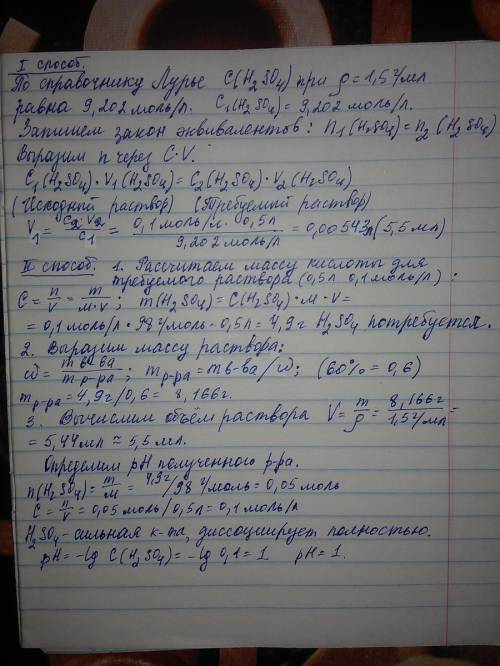 I способ.
По справочнику Лурье C(H₂SO₄) при ρ = 1,5 г/мл
равна 9,202 моль/л. C₁(H₂SO₄) = 9,202 моль/л.
Запишем закон эквивалентов: n₁(H₂SO₄) = n₂(H₂SO₄)
Выразим n через C·V.
C₁(H₂SO₄)·V₁(H₂SO₄) = C₂(H₂SO₄)·V₂(H₂SO₄)
(Исходный раствор) (Требуемый раствор)
V₁ = C₂·V₂/C₁ = 0,1 моль/л·0,5л/9,202 моль/л = 0,00543л (5,5 мл)
II способ. 1. Рассчитаем массу кислоты для
требуемого раствора (0,5л 0,1 моль/л):
C = n/V = m/M·V; m(H₂SO₄) = C(H₂SO₄)·M·V =
= 0,1 моль/л·98 г/моль·0,5л = 4,9 г H₂SO₄ потребуется.
2. Выразим массу раствора:
ω = m в-ва/m р-ра; m р-ра = m в-ва/ω; (60% = 0,6)
m р-ра = 4,9 г/0,6 = 8,166 г.
3. Вычислим объём раствора V = m/ρ = 8,166 г/1,5 г/мл =
= 5,44 мл ≈ 5,5 мл.
Определим pH полученного р-ра.
n(H₂SO₄) = m/M = 4,9 г/98 г/моль = 0,05 моль
C = n/V = 0,05 моль/0,5л = 0,1 моль/л
H₂SO₄ - сильная к-та, диссоциирует полностью.
pH = -lg C(H₂SO₄) = -lg 0,1 = 1 pH = 1.